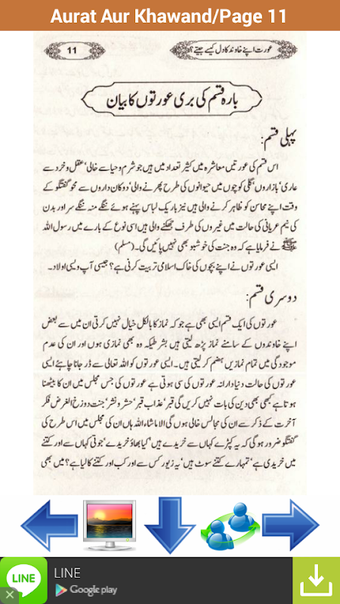 Aurat Aur Khawand/Page 11
11
عورت اپنے خاوند کا دل کیسے جیتے؟
بارہ قسم کی بری عورتوں کا بیان
پہلی قسم:
اس قسم کی عورتیں معاشرہ میں کثیر تعداد میں ہیں جو شرم و حیا سے خالی' عقل و خرد سے
عاری' بازاروں' گلی کوچوں میں حیوانوں کی طرح پھرنے والی' دوکان داروں سے محو گفتگو کے
وقت اپنے محاسن کو ظاہر کرنے والی ہیں نیز باریک لباس پہنے ہوئے ننگے منہ ننگے سر اور بدن
کی نیم عریانی کی حالت میں غیروں کی طرف جھکنے والی ہیں اسی نوع کے بارے میں رسول اللہ
ﷺ نے فرمایا ہے کہ وہ جنت کی خوشبو بھی نہیں پائیں گی۔ (مسلم)
ایسی عورتوں نے اپنے بچوں کی خاک اسلامی تربیت کرنی ہے؟ جیسی آپ ویسی اولاد۔
دوسری قسم:
عورتوں کی ایک قسم ایسی بھی ہے جو کہ نماز کا بالکل خیال نہیں کرتی ان میں سے بعض
اپنے خاوندوں کے سامنے نماز پڑھ لیتی ہیں بشرطیکہ وہ بھی نمازی ہوں اور ان کی عدم
موجودگی میں تمام نمازیں ہضم کر لیتی ہیں۔ ایسی عورتوں کو اللہ تعالی سے ڈر جانا چاہئے ایسی
عورتوں کی حالت دنیا دارانہ عورتوں کی سی ہوتی ہے عورتوں کی جس مجلس میں ان کا بیٹھنا
ہوتا ہے کبھی بھی دین کی بات نہیں کریں گی قبر' عذاب قبر' حشر و نشر' جنت و دوزخ الغرض فکر
آخرت کے ذکر سے ان کی مجالس خالی ہوں گی الا ماشاء اللہ ہاں ان کی مجلس میں اس طرح کی
گفتگو ضرور ہو گی کہ یہ کپڑے کہاں سے خریدے ہیں' کیا بھاؤ خریدے' جوتی کہاں سے اور کتنے
میں خریدی ہے' تمہارے کتنے سوٹ ہیں' یہ زیور کس سے اور کب اور کتنے کا لیا ہے؟ میں بھی
LINE
Google play